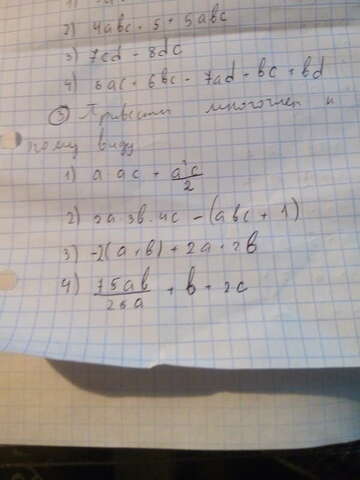 2) 4abc - 5 + 5abc
3) 7cd - 8dc
4) 6ac - 6bc - 7ad - bc + bd
③ Привести многочлен к
ному виду
1) a ac + a²c/2
2) 2a 3b · 4c - (abc + 1)
3) -2(a + b) + 2a · 2b
4) 75ab/25a + b - 2c